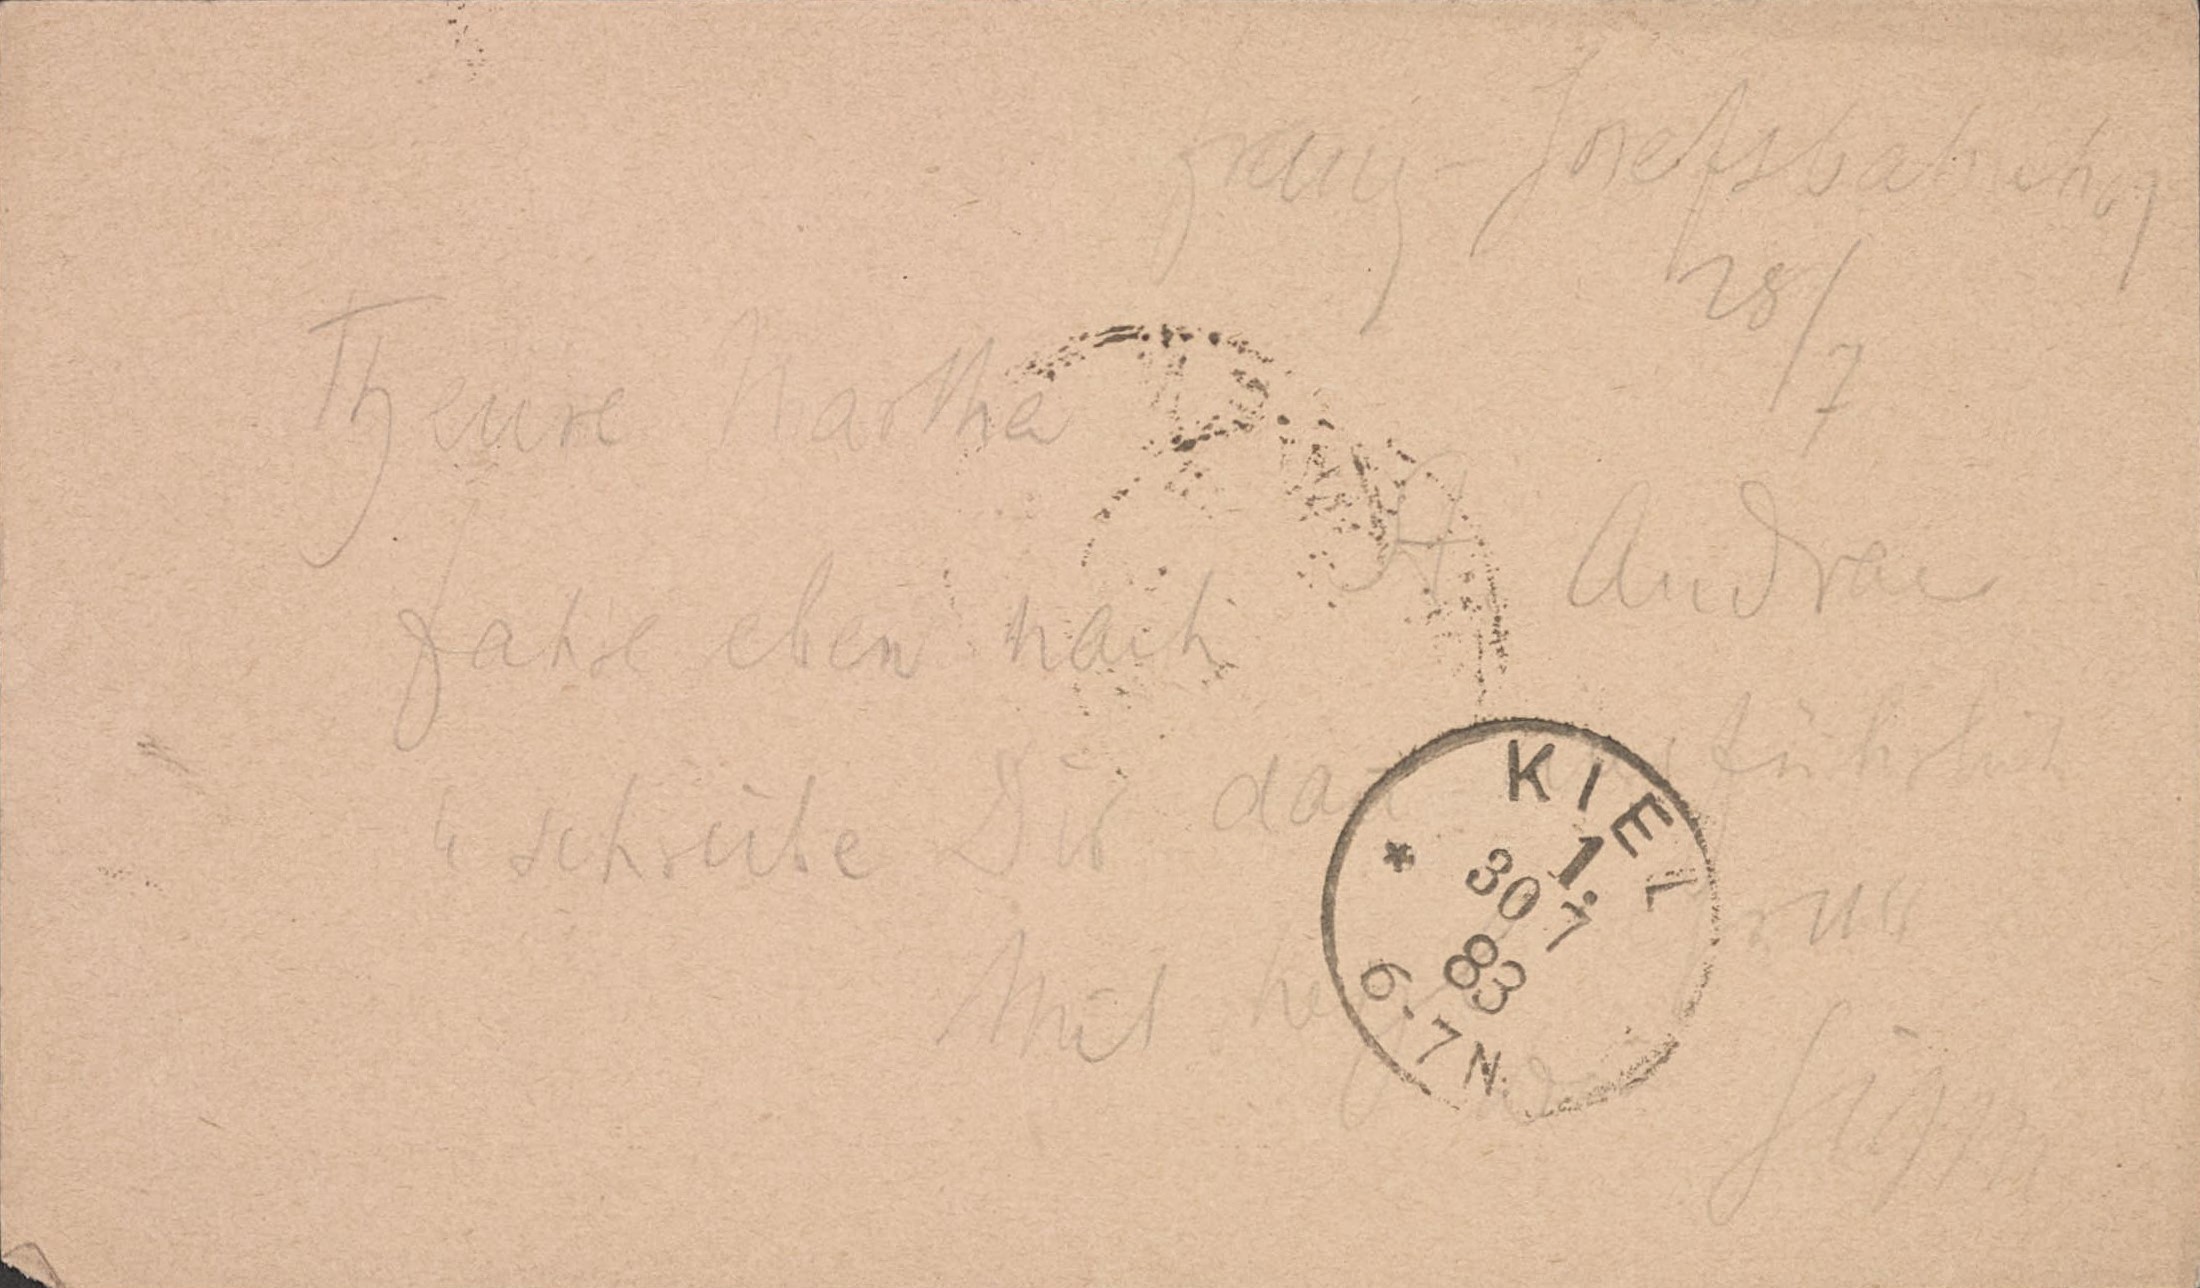 Franz-Josefsbahnhof
28/7
Theure Martha
fahre eben nach St Andrae
u schreibe Dir dan ausführlich
Mit herz Gruss
Sigm
KIEL
1.
30 7
83
6-7N.